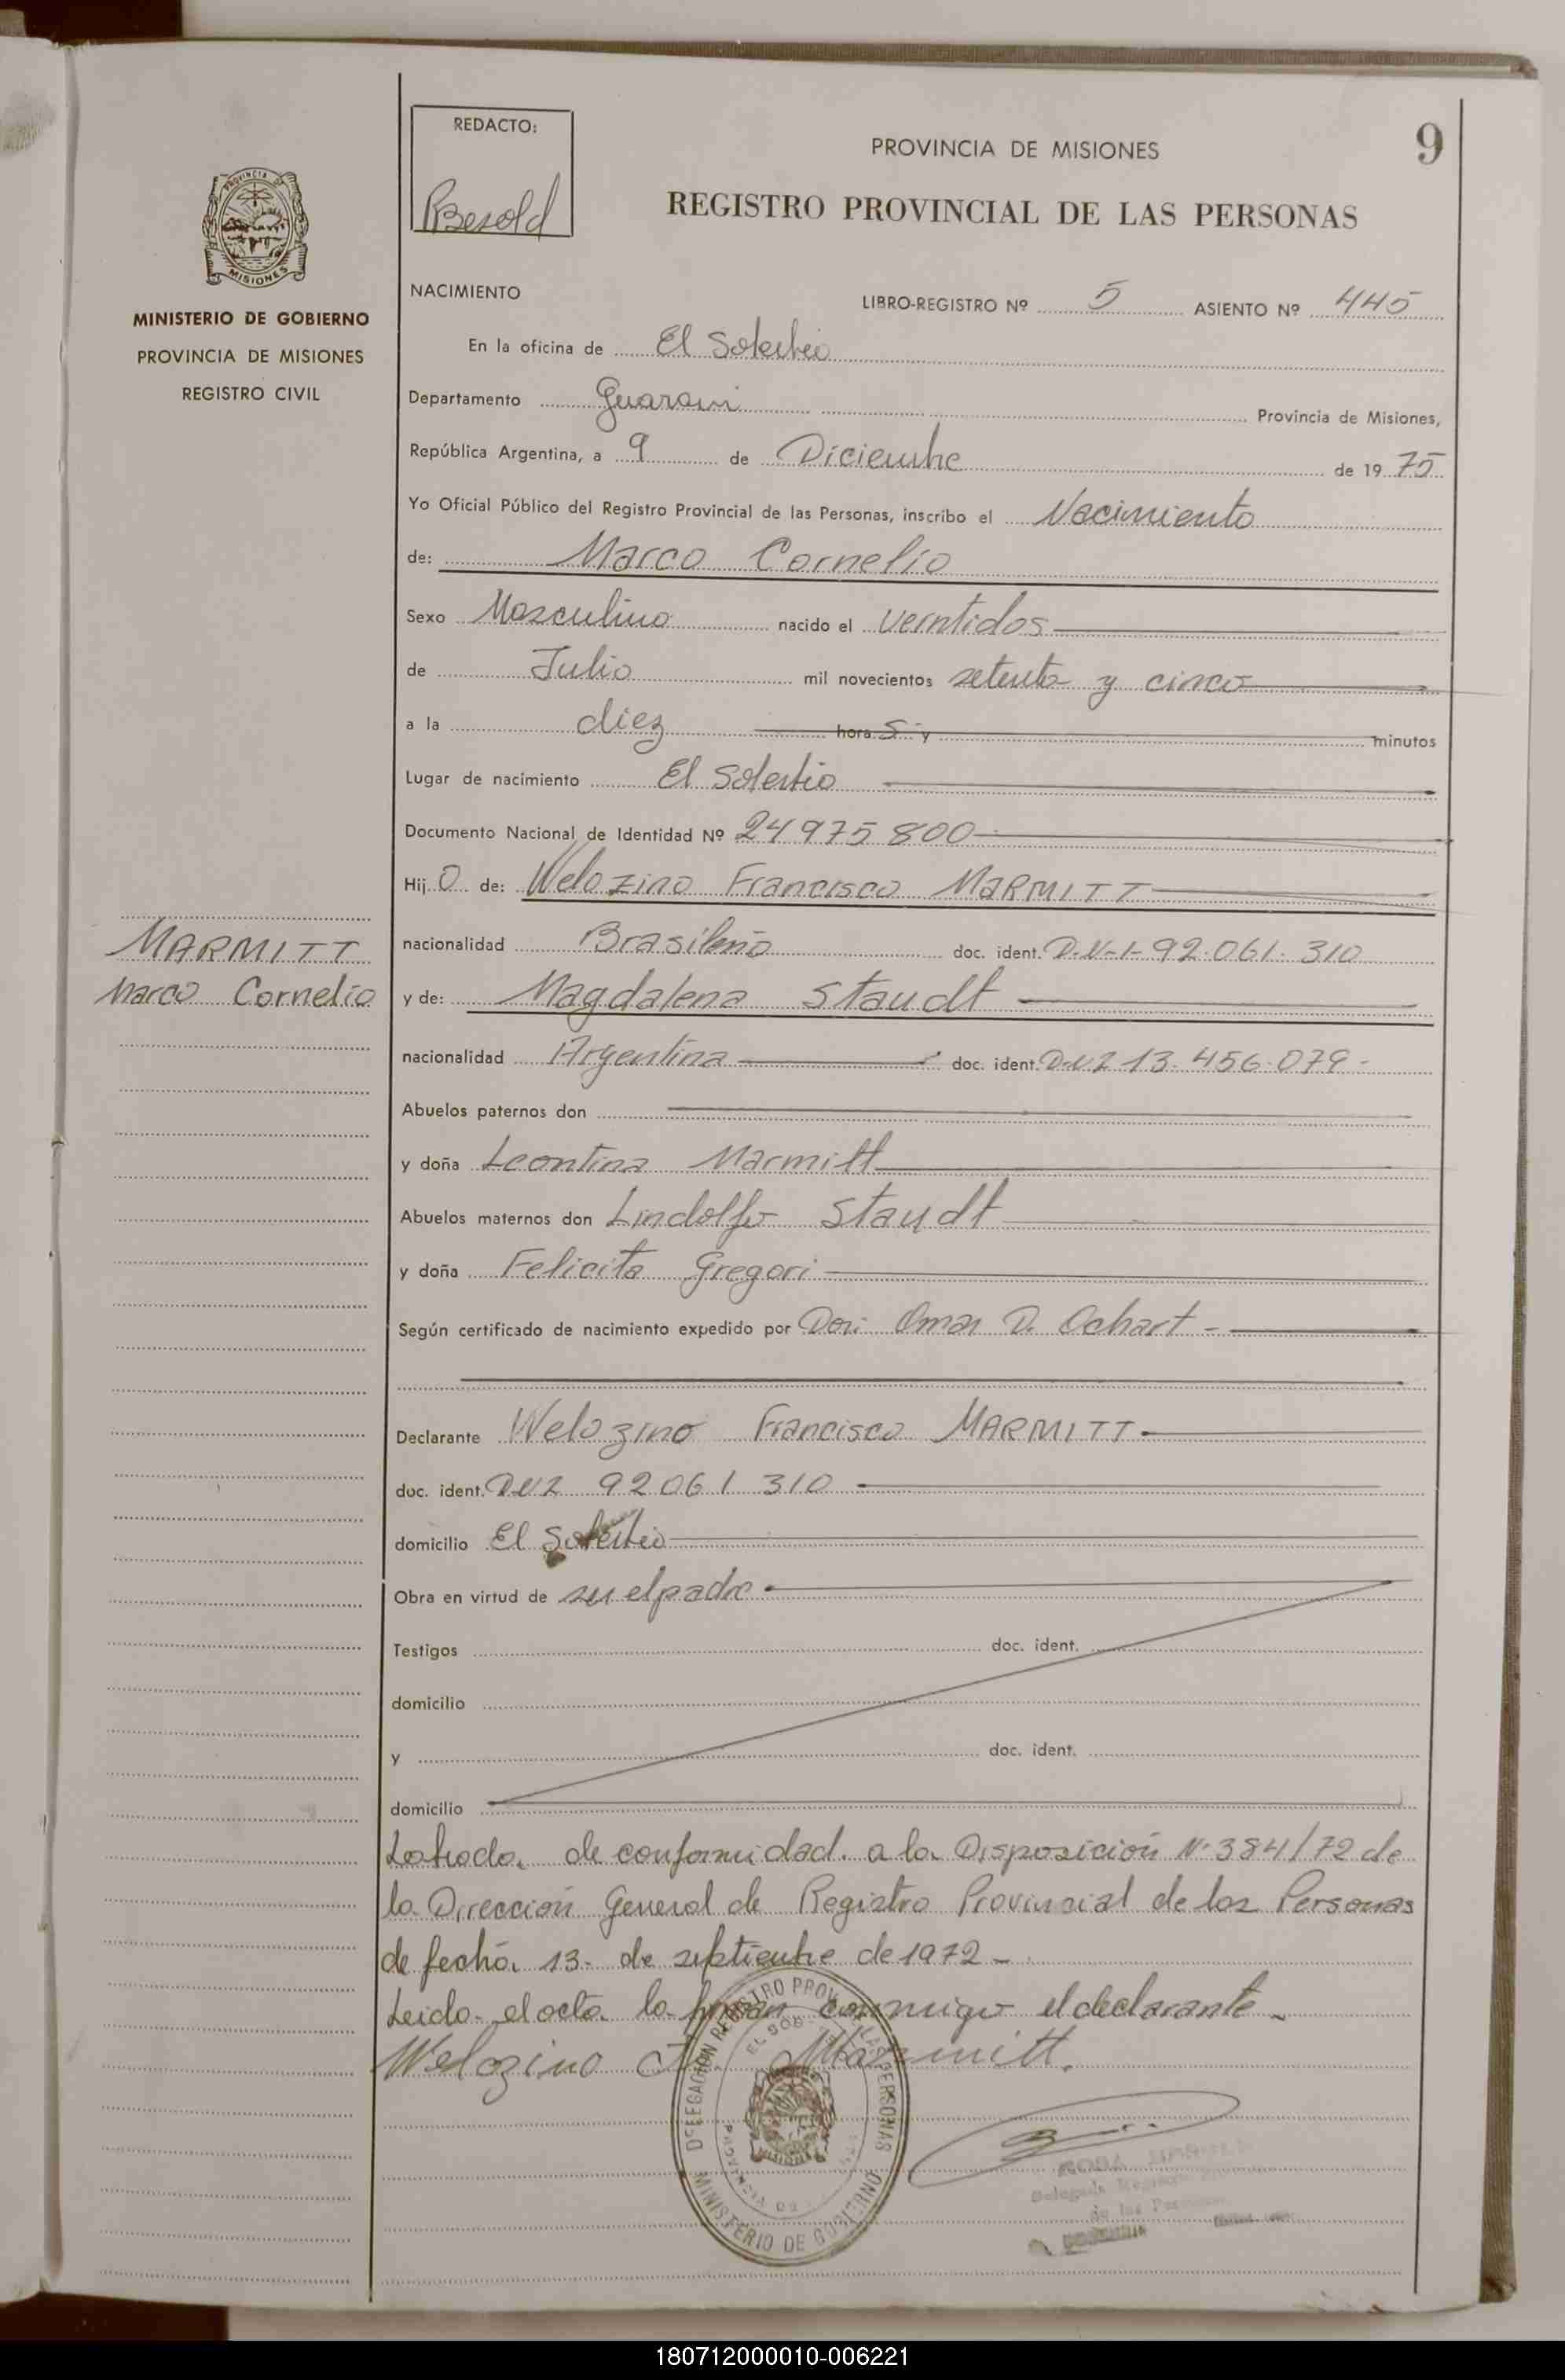 REDACTO:
PROVINCIA DE MISIONES
9
REGISTRO PROVINCIAL DE LAS PERSONAS
PROVINCIA DE
MISIONES
MINISTERIO DE GOBIERNO
PROVINCIA DE MISIONES
REGISTRO CIVIL
NACIMIENTO
LIBRO-REGISTRO Nº 5 ASIENTO Nº 445
En la oficina de El Soberbio
Departamento Guarani Provincia de Misiones,
República Argentina, a 9 de Diciembre de 19 75
Yo Oficial Público del Registro Provincial de las Personas, inscribo el Nacimiento
de: Marco Cornelio
Sexo Masculino nacido el veintidos
de Julio mil novecientos setenta y cinco
a la diez hora s y minutos
Lugar de nacimiento El Soberbio
Documento Nacional de Identidad Nº 24975800
Hij o de: Welozino Francisco MARMITT
MARMITT
Marco Cornelio
nacionalidad Brasileño doc. ident. D.N.I. 92.061.310
y de: Magdalena Staudt
nacionalidad Argentina doc. ident. DNI 13.456.079-
Abuelos paternos don
y doña Leontina Marmitt
Abuelos maternos don Lindolfo Staudt
y doña Felicita Gregori
Según certificado de nacimiento expedido por Omar D. Ochart -
Declarante Welozino Francisco MARMITT
doc. ident. DNI 92061310
domicilio El Soberbio
Obra en virtud de ser el padre
Testigos doc. ident.
domicilio
y doc. ident.
domicilio
Labrada de conformidad a la Disposición Nº 384/72 de
la Dirección General de Registro Provincial de las Personas
de fecha 13 de septiembre de 1972 -
Leida el acta la firman conmigo el declarante -
Welozino F. Marmitt.
DELEGACION REGISTRO PROV. LAS PERSONAS
MINISTERIO DE GOBIERNO
MISIONES
180712000010-006221